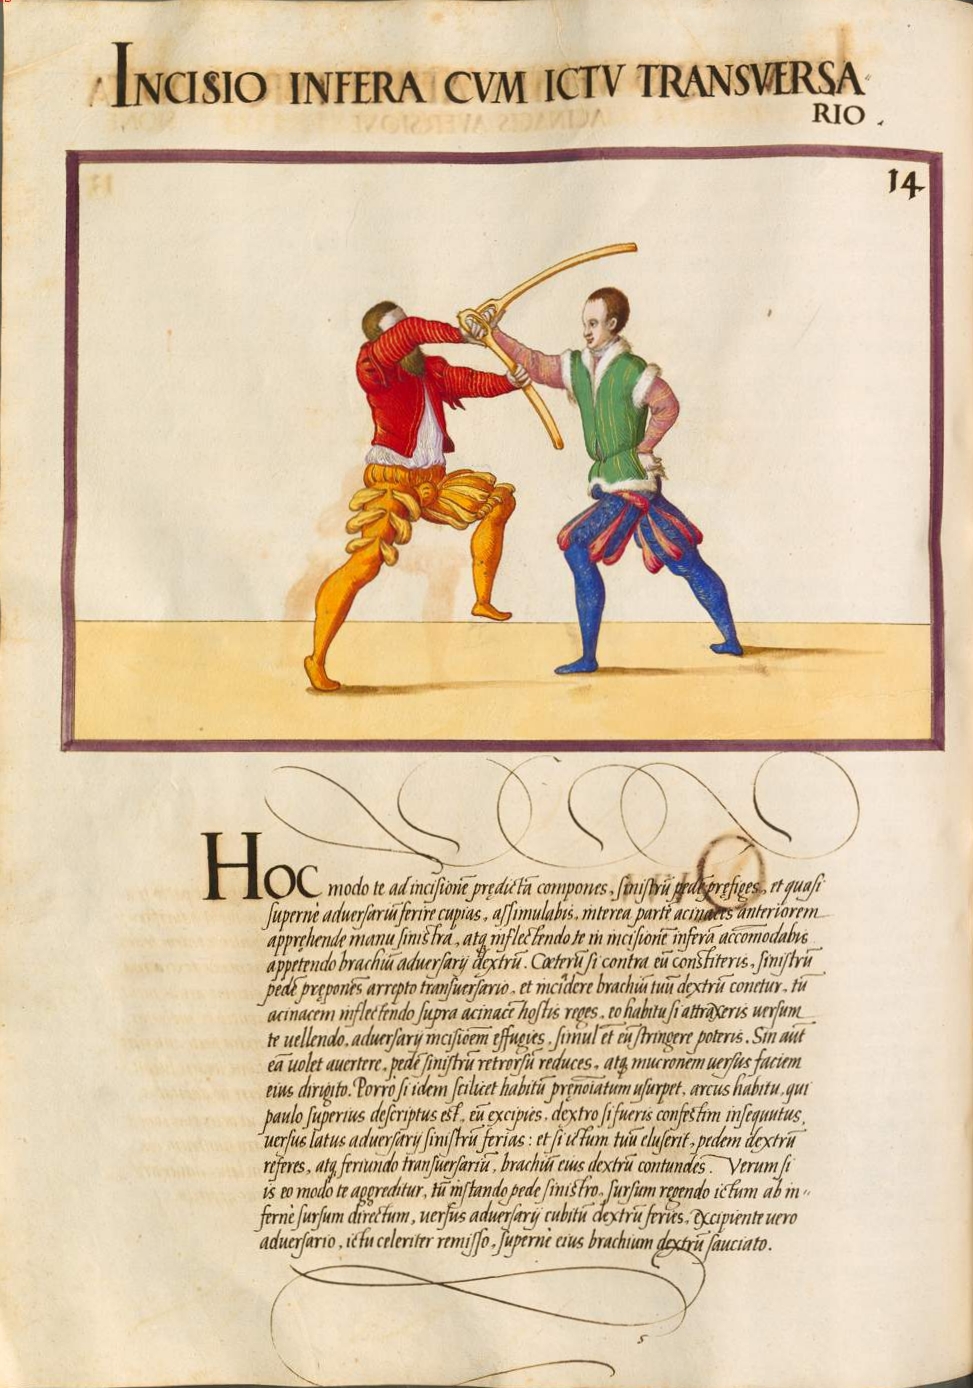 INCISIO INFERA CVM ICTV TRANSVERSA
RIO .
14
HOC modo te ad incisionē prędictā compones, sinistrū pedē pręfiges, et quasi
supernè aduersariū ferire cupias, assimulabis, interea partē acinacis anteriorem
apprehende manu sinistra, atq inflectendo te in incisionē inferā accōmodabis
appetendo brachiū aduersarij dextrū. Cœterū si contra eū constiteris, sinistrū
pedē prępones arrepto transuersario, et incidere brachiū tuū dextrū conetur, tu
acinacem inflectendo supra acinacē hostis reges, eo habitu si attraxeris uersum
te uellendo, aduersarij incisioēm effugies, simul et eū stringere poteris. Sin aūt
eā uolet auertere, pedē sinistrū retrorsū reduces, atq mucronem uersus faciem
eius dirigito. Porrò si idem scilicet habitū pręnoiatum usurpet, arcus habitu, qui
paulo superius descriptus est, eū excipies, dextro si fueris confestim insequutus,
uersus latus aduersarij sinistrū ferias: et si ictum tuū eluserit, pedem dextrū
referes, atq feriundo transuersariū, brachiū eius dextrū contundes. Verum si
is eo modo te aggreditur, tū instando pede sinistro, sursum regendo ictum ab in-
fernè sursum directum, uersus aduersarij cubitū dextrū feries, excipiente uero
aduersario, ictu celeriter remisso, supernè eius brachium dextrū sauciato.
5